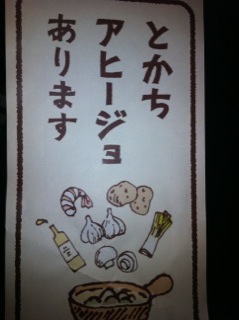 とかち
アヒージョ
あります